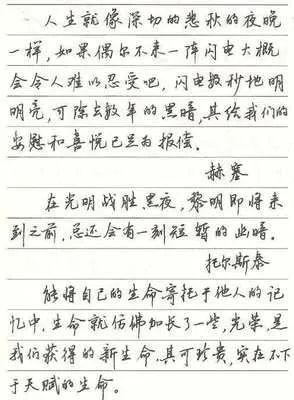 人生就像深切的悲秋的夜晚
一样，如果偶尔不来一阵闪电大概
会令人难以忍受吧，闪电数秒地明
明亮，可除去数年的黑暗，其给我们的
安慰和喜悦已足为报偿。
赫塞
在光明战胜黑夜，黎明即将来
到之前，总还会有一刻短暂的此暗。
托尔斯泰
能将自己的生命寄托于他人的记
忆中，生命就仿佛加长了一些，光荣，是
我们获得的新生命，其可珍贵，实在不下
于天赋的生命。